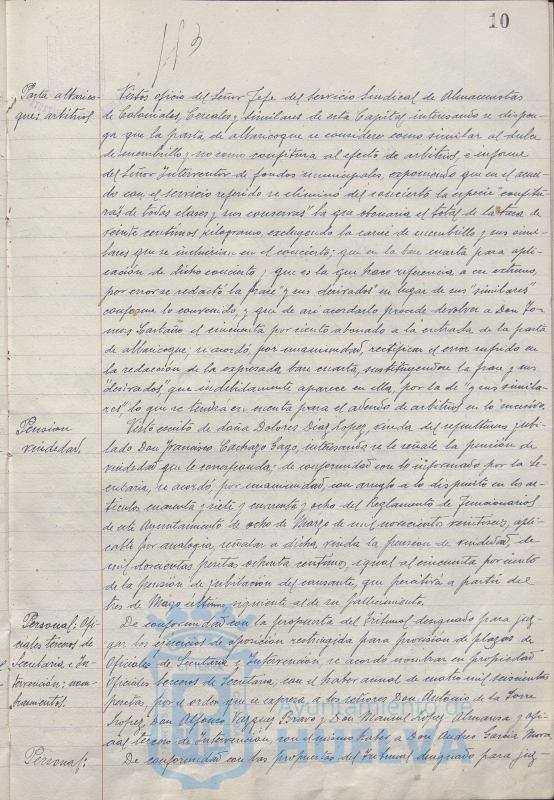 10
Pasta albarico-
que: arbitrios
Vistos oficio del Señor Jefe del Servicio Sindical de Almacenistas
de Coloniales, Cereales y similares de esta Capital, interesando se dispon-
ga que la pasta de albaricoque se considere como similar al dulce
de membrillo y no como confitura al efecto de arbitrios, e informe
del Señor Interventor de fondos municipales, exponiendo que en el acuer-
do con el servicio referido se eliminó del concierto la especie "confitu-
ras de todas clases y sus conservas" lo que
veinte centimos kilogramo, excluyendo la carne de membrillo y sus simi-
lares que se incluirian en el concierto; que en la base cuarta para apli-
cación de dicho concierto, que es la que hace referencia a ese extremo,
por error se redactó la frase "y sus derivados" en lugar de sus "similares"
conforme lo convenido, y que de asi acordarlo procede devolver a Don To-
mas Castaño el cincuenta por ciento abonado a la entrada de la pasta
de albaricoque; se acordó, por unanimidad, rectificar el error sufrido en
la redacción de la expresada base cuarta, sustituyendose la frase y sus
"derivados" que indebidamente aparece en ella, por la de "y sus simila-
res" lo que se tendrá en cuenta para el adeudo de arbitrios en lo sucesivo.
Pension
viudedad.
Visto escrito de doña Dolores Diaz Lopez, viuda del sepulturero jubi-
lado Don Francisco Cachazo Gago, interesando se le señale la pensión de
viudedad que le corresponda; de conformidad con lo informado por la Se-
cretaria, se acordó, por unanimidad, con arreglo a lo dispuesto en los ar-
tículos cuarenta y siete y cuarenta y ocho del Reglamento de Funcionarios
de este Ayuntamiento de ocho de Marzo de mil novecientos veintitres, apli-
cable por analogia, señalar a dicha viuda la pension de viudedad, de
mil doscientas pesetas ochenta centimos, igual al cincuenta por ciento
de la pensión de jubilación del causante, que percibirá a partir del
tres de Mayo último, siguiente al de su fallecimiento.
Personal: Ofi-
ciales terceros de
Secretaria e In-
tervención; nom-
bramientos.
De conformidad con la propuesta del Tribunal designado para juz-
gar los ejercicios de oposición restringida para provision de plazas de
Oficiales de Secretaria y Intervención, se acordó nombrar en propiedad
Oficiales terceros de Secretaria, con el haber anual de cuatro mil seiscientas
pesetas, por el orden que se expresa, a los señores Don Antonio de la Torre
Lopez, Don Alfonso Vazquez Bravo y Don Manuel Lopez Almansa; y ofi-
cial tercero de Intervención, con el mismo haber, a Don Andres Garcia Mora.
Personal:
De conformidad con las propuestas del Tribunal designado para juz-
Ayuntamiento de